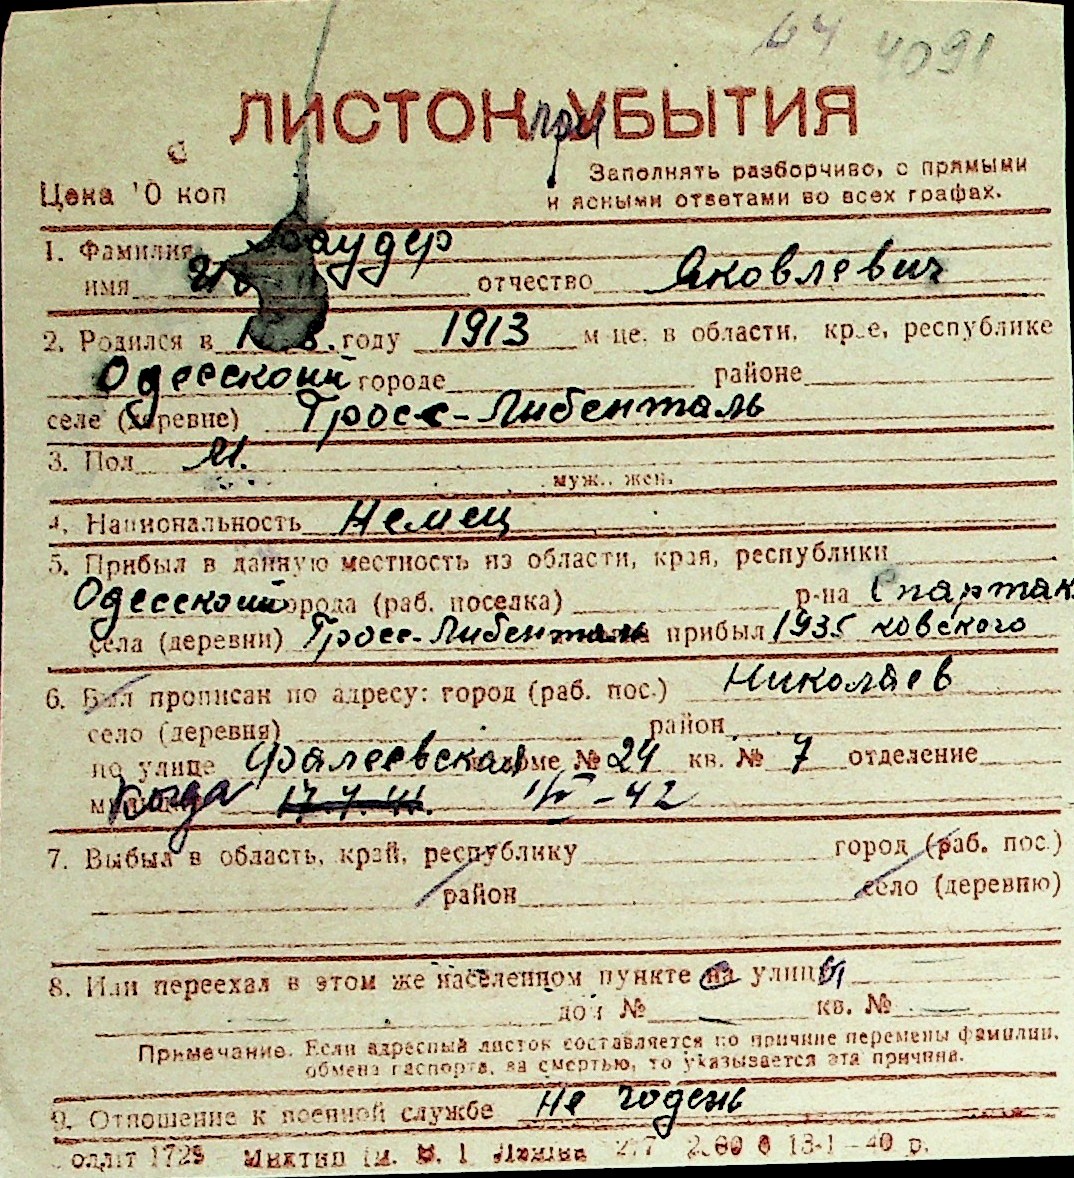 64 4091
ЛИСТОК при УБЫТИЯ
Цена 10 коп
Заполнять разборчиво, с прямыми
и ясными ответами во всех графах.
1. Фамилия аудер
имя отчество Яковлевич
2. Родился в году 1913 м-це, в области, крае, республике
Одесский городе районе
селе (деревне) Гросс-Либенталь
3. Пол М.
муж., жен.
4. Национальность Немец
5. Прибыл в данную местность из области, края, республики
Одесский города (раб. поселка) р-на Спартак
села (деревни) Гросс-Либенталь прибыл 1935 ковского
6. Был прописан по адресу: город (раб. пос.) Николаев
село (деревня) район
по улице Фалеевская доме № 24 кв. № 7 отделение
Когда 17.7.41. -42
7. Выбыл в область, край, республику город (раб. пос.)
район село (деревню)
8. Или переехал в этом же населенном пункте на улицы
дом № кв. №
Примечание. Если адресный листок составляется по причине перемены фамилии,
обмена паспорта, за смертью, то указывается эта причина.
9. Отношение к военной службе не годень
1729 277 13-1-40 р.